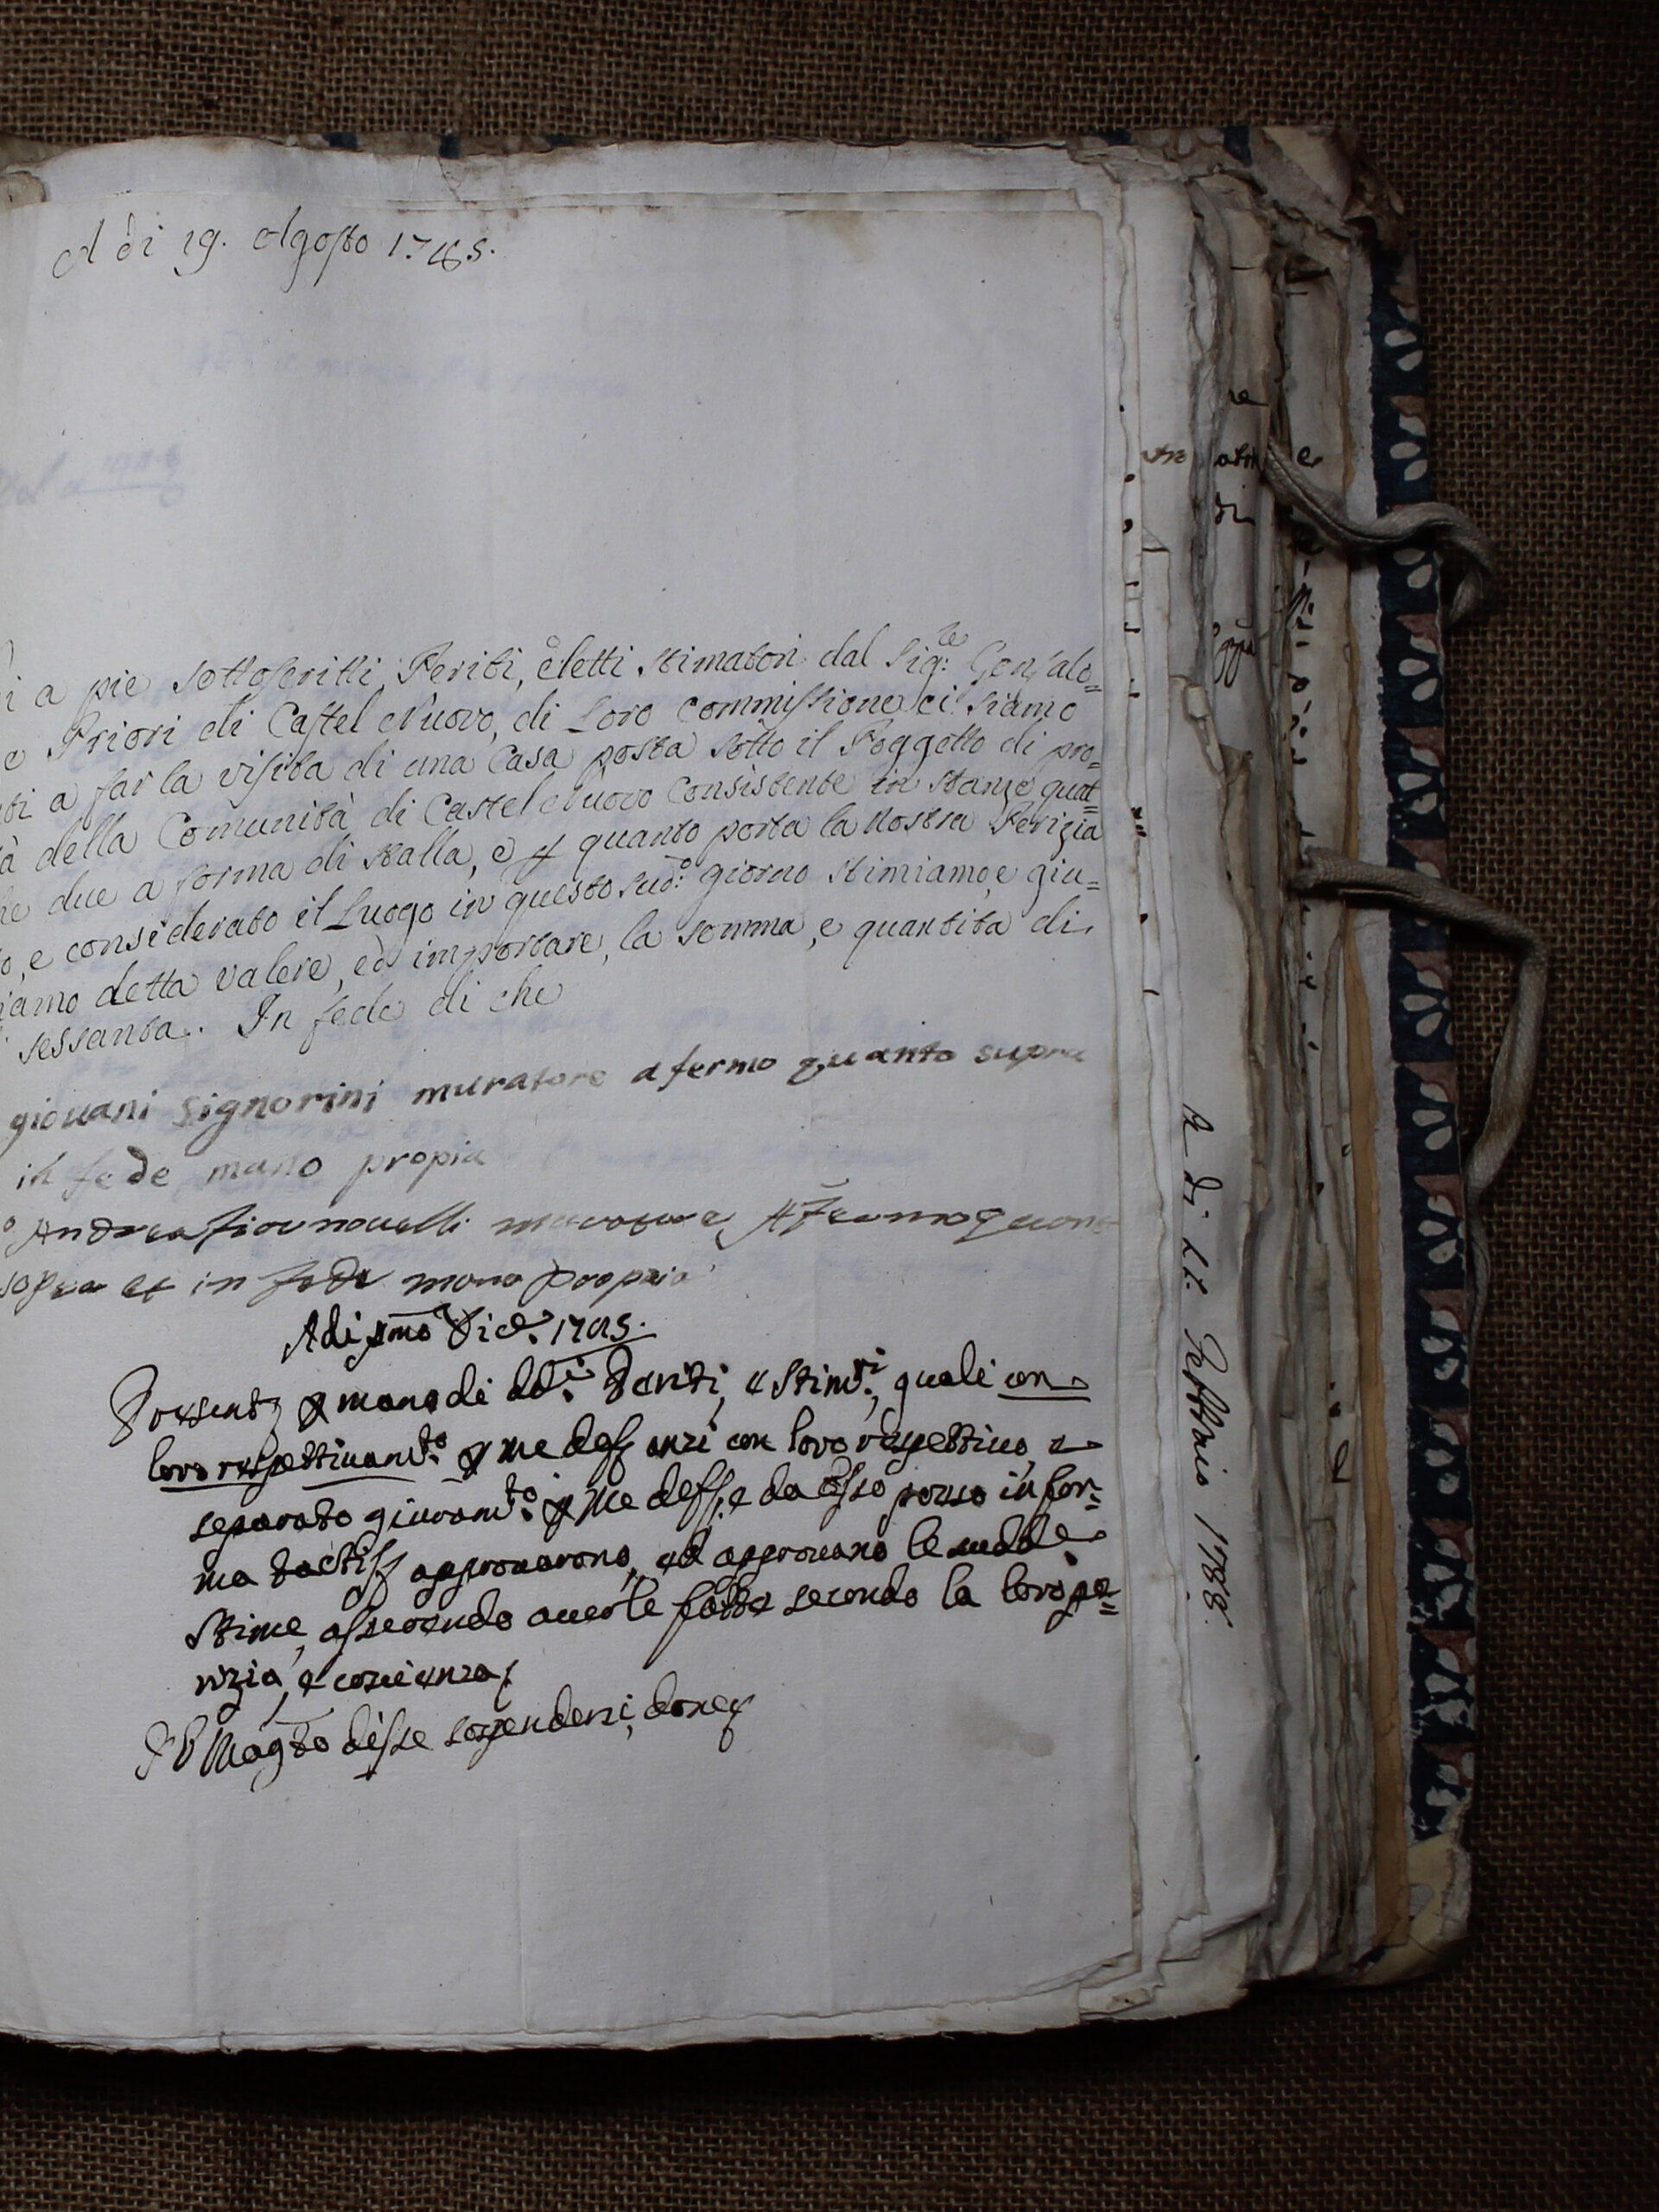 A di 19. Agosto 1785.
i a pie sottoscritti Periti, eletti Stimatori dal Sig:re Gonfalo=
e Priori di Castel Nuovo, di Loro commissione ci siamo
ti a far la visita di una Casa posta sotto il Poggetto di pro=
à della Comunità di Castel Nuovo Consistente in Stanze quat=
he due a forma di stalla, e p quanto porta la nostra Perizia
o, e considerato il Luogo in questo sud:o giorno stimiamo, e giu=
iamo detta valere, ed importare, la somma, e quantita di
sessanta. In fede di che
giovani Signorini muratore afermo quanto supra
in fede mano propia
Andrea muratore Afermo quan
sopra et in fede mano propria
Adi pmo Dice. 1785.
Present p mano di dd:i Periti, e Stimri:, quali con
loro respettivamto: p me deff anzi con loro respettivo, e
separato giuramto: p me deff, e da esso preso in for=
ma tactis approvarono, ed approvano le sudde
Stime, asserendo averle fatte secondo la loro pe=
rizia, e coscienza
Il Magto disse sospendersi, donec
A di Febbraio 1788.